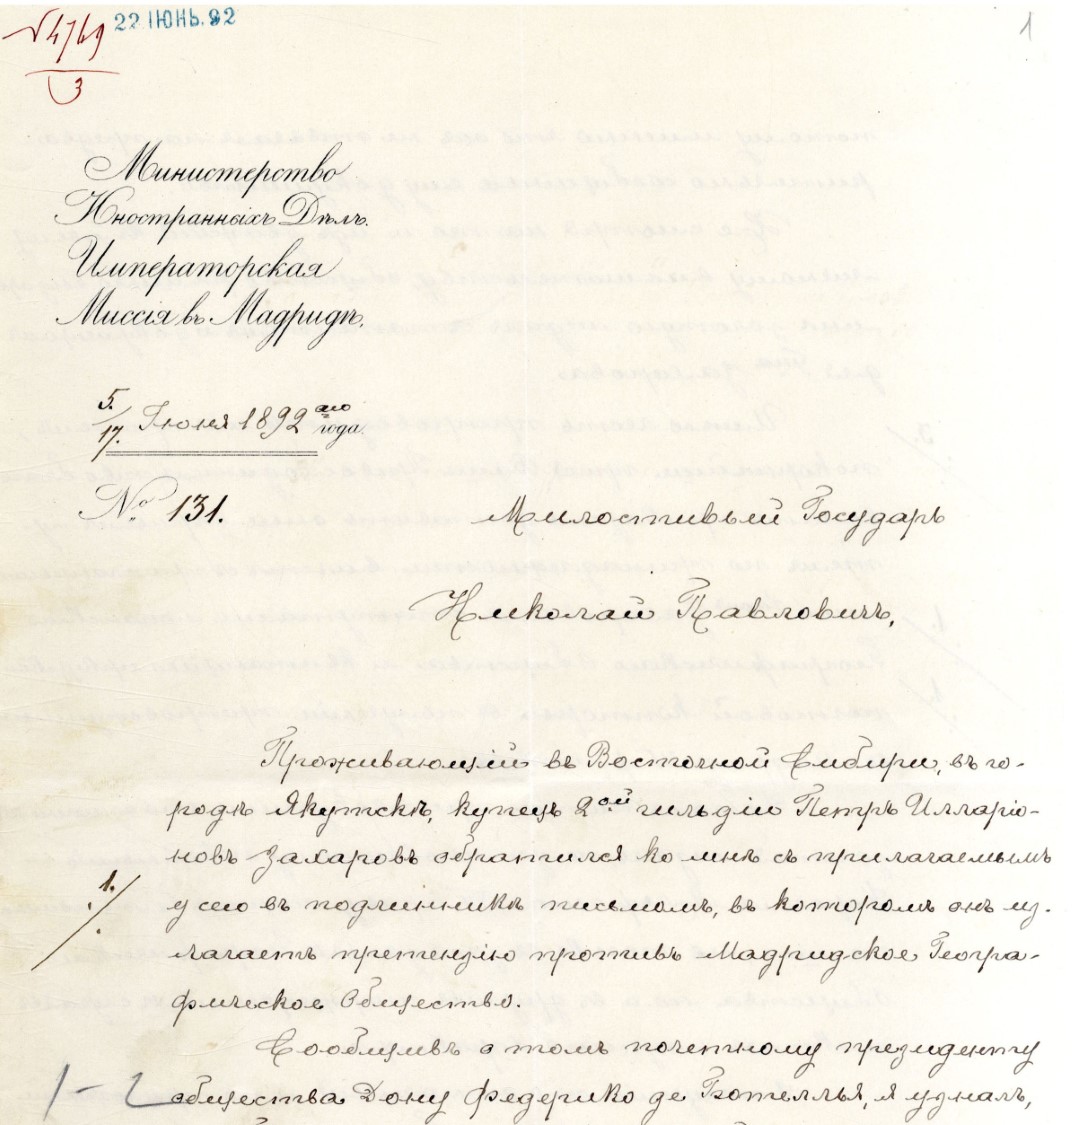 № 4769
3
22 ІЮНЬ.92
1
Министерство
Иностранныхъ Дѣлъ.
Императорская
Миссія въ Мадридѣ.
5/17. Іюня 1892 аго года.
№ 131.
Милостивый Государь
Николай Павловичъ,
Проживающій въ Восточной Сибири, въ го-
родѣ Якутскѣ, купецъ 2ой гильдіи Петръ Илларіо-
новъ Захаровъ обратился ко мнѣ съ прилагаемымъ
1.
у сего въ подлинникѣ письмомъ, въ которомъ онъ из-
лагаетъ претензію противъ Мадридское Геогра-
фическое Общество.
Сообщивъ о томъ почетному президенту
1-2
общества Дону Федерико де Ботеллья, я узналъ,